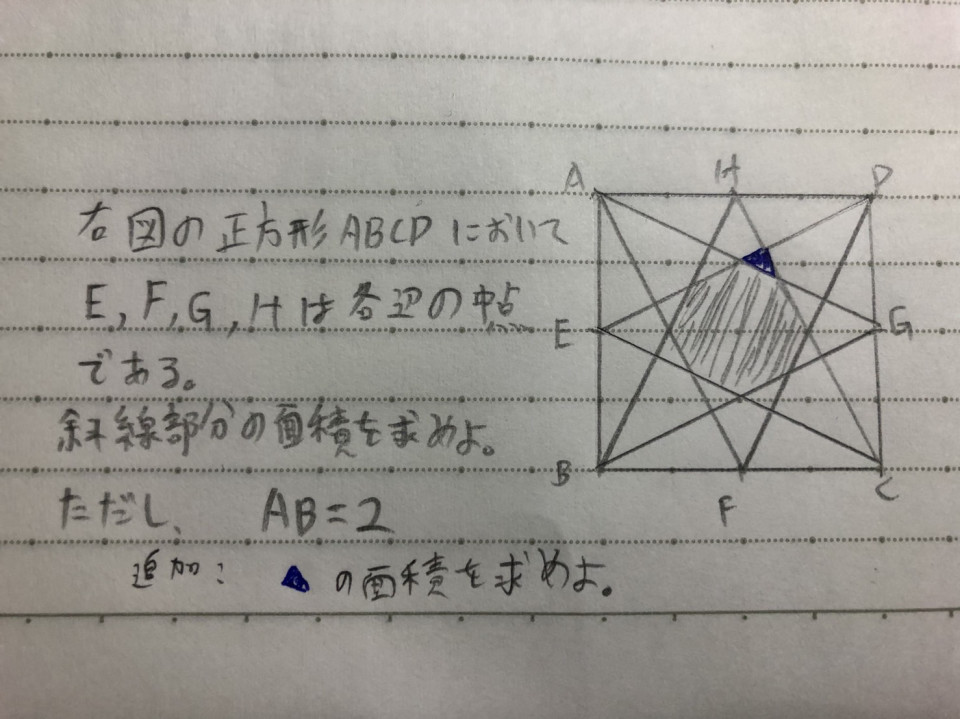 右図の正方形ABCDにおいて
E, F, G, Hは各辺の中点
である。
斜線部分の面積を求めよ。
ただし、 AB=2
追加: の面積を求めよ。
A H D
E G
B F C